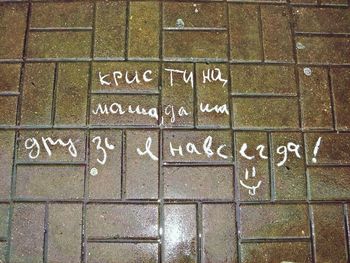 кристина
маша даша
друзья навсегда!